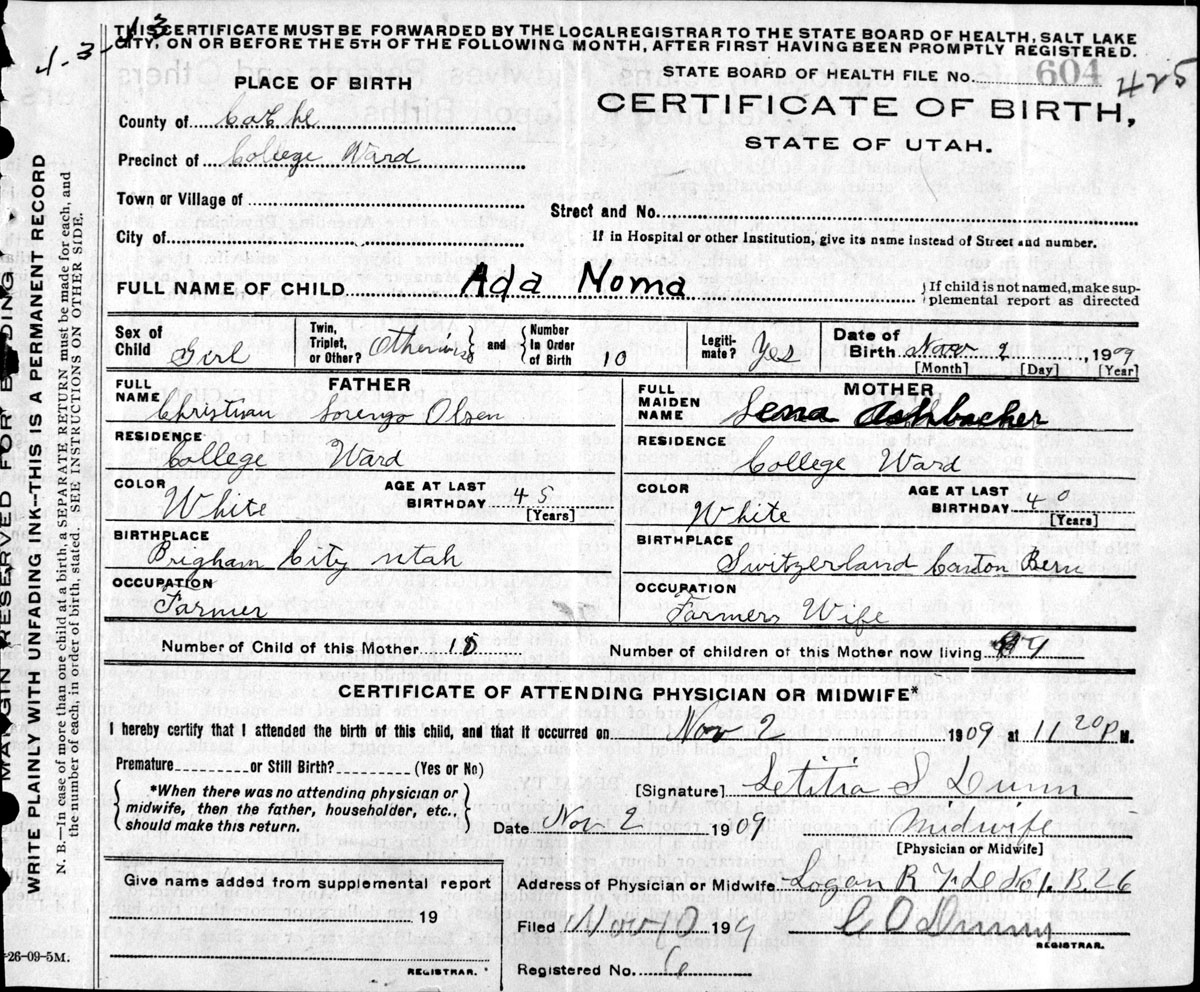 4-3-13
THIS CERTIFICATE MUST BE FORWARDED BY THE LOCAL REGISTRAR TO THE STATE BOARD OF HEALTH, SALT LAKE
CITY, ON OR BEFORE THE 5TH OF THE FOLLOWING MONTH, AFTER FIRST HAVING BEEN PROMPTLY REGISTERED.
STATE BOARD OF HEALTH FILE No. 604 425
CERTIFICATE OF BIRTH,
STATE OF UTAH.
PLACE OF BIRTH
County of Cache
Precinct of College Ward
Town or Village of
City of
Street and No.
If in Hospital or other Institution, give its name instead of Street and number.
FULL NAME OF CHILD Ada Noma
{If child is not named, make sup-
plemental report as directed
Sex of Child Girl
Twin, Triplet, or Other? and Number In Order of Birth 10
Legiti-mate? Yes
Date of Birth Nov 2, 1909
[Month] [Day] [Year]
FATHER
FULL NAME Christian Lorenzo Olsen
RESIDENCE College Ward
COLOR White
AGE AT LAST BIRTHDAY 45 [Years]
BIRTHPLACE Brigham City Utah
OCCUPATION Farmer
MOTHER
FULL MAIDEN NAME Lena Aschbacher
RESIDENCE College Ward
COLOR White
AGE AT LAST BIRTHDAY 40 [Years]
BIRTHPLACE Switzerland Canton Bern
OCCUPATION Farmers Wife
Number of Child of this Mother 10
Number of children of this Mother now living 9
CERTIFICATE OF ATTENDING PHYSICIAN OR MIDWIFE*
I hereby certify that I attended the birth of this child, and that it occurred on Nov 2 1909 at 11 20 P M.
Premature or Still Birth? (Yes or No)
*When there was no attending physician or
midwife, then the father, householder, etc.,
should make this return.
[Signature] Letitia S Dunn
Date Nov 2 1909 Midwife
[Physician or Midwife]
Give name added from supplemental report
19
REGISTRAR.
Address of Physician or Midwife Logan R.F.D. No 1. B.26
Filed Nov 10 199 C O Dunn
REGISTRAR.
Registered No. 6
26-09-5M.
MARGIN RESERVED FOR BINDING
WRITE PLAINLY WITH UNFADING INK--THIS IS A PERMANENT RECORD
N. B.—In case of more than one child at a birth, a SEPARATE RETURN must be made for each, and
the number of each, in order of birth, stated. SEE INSTRUCTIONS ON OTHER SIDE.